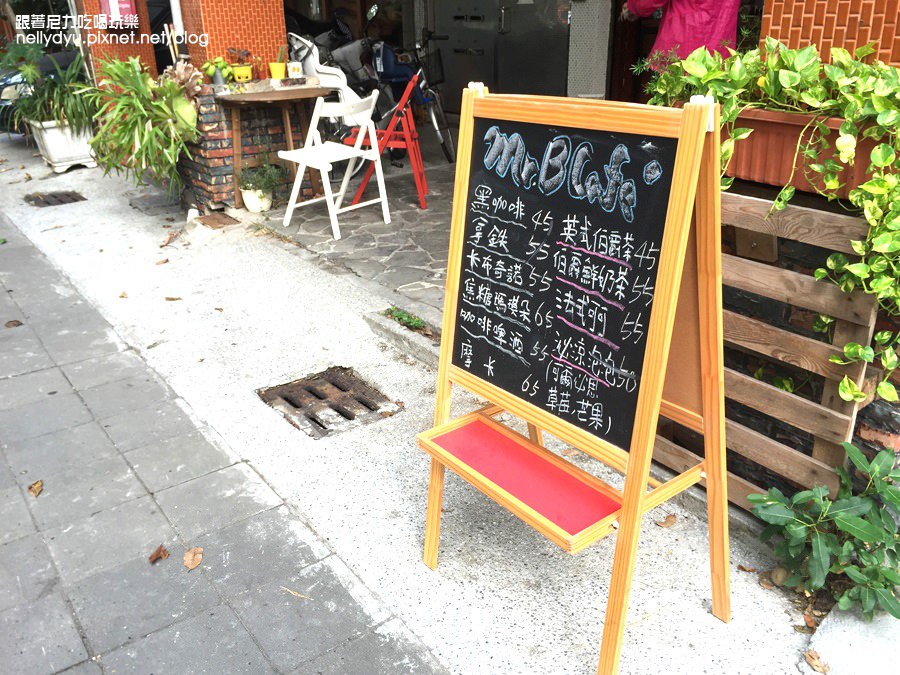 跟著尼力吃喝玩樂
nellydyu.pixnet.net/blog
Mr. B Cafe
黑咖啡 45
拿鉄 55
卡布奇諾 55
焦糖瑪奇朵 65
咖啡啤酒 55
摩卡 65
英式伯爵茶 45
伯爵鮮奶茶 55
法式可可 55
沁涼泡泡 50
(阿爾必思
草莓,芒果)